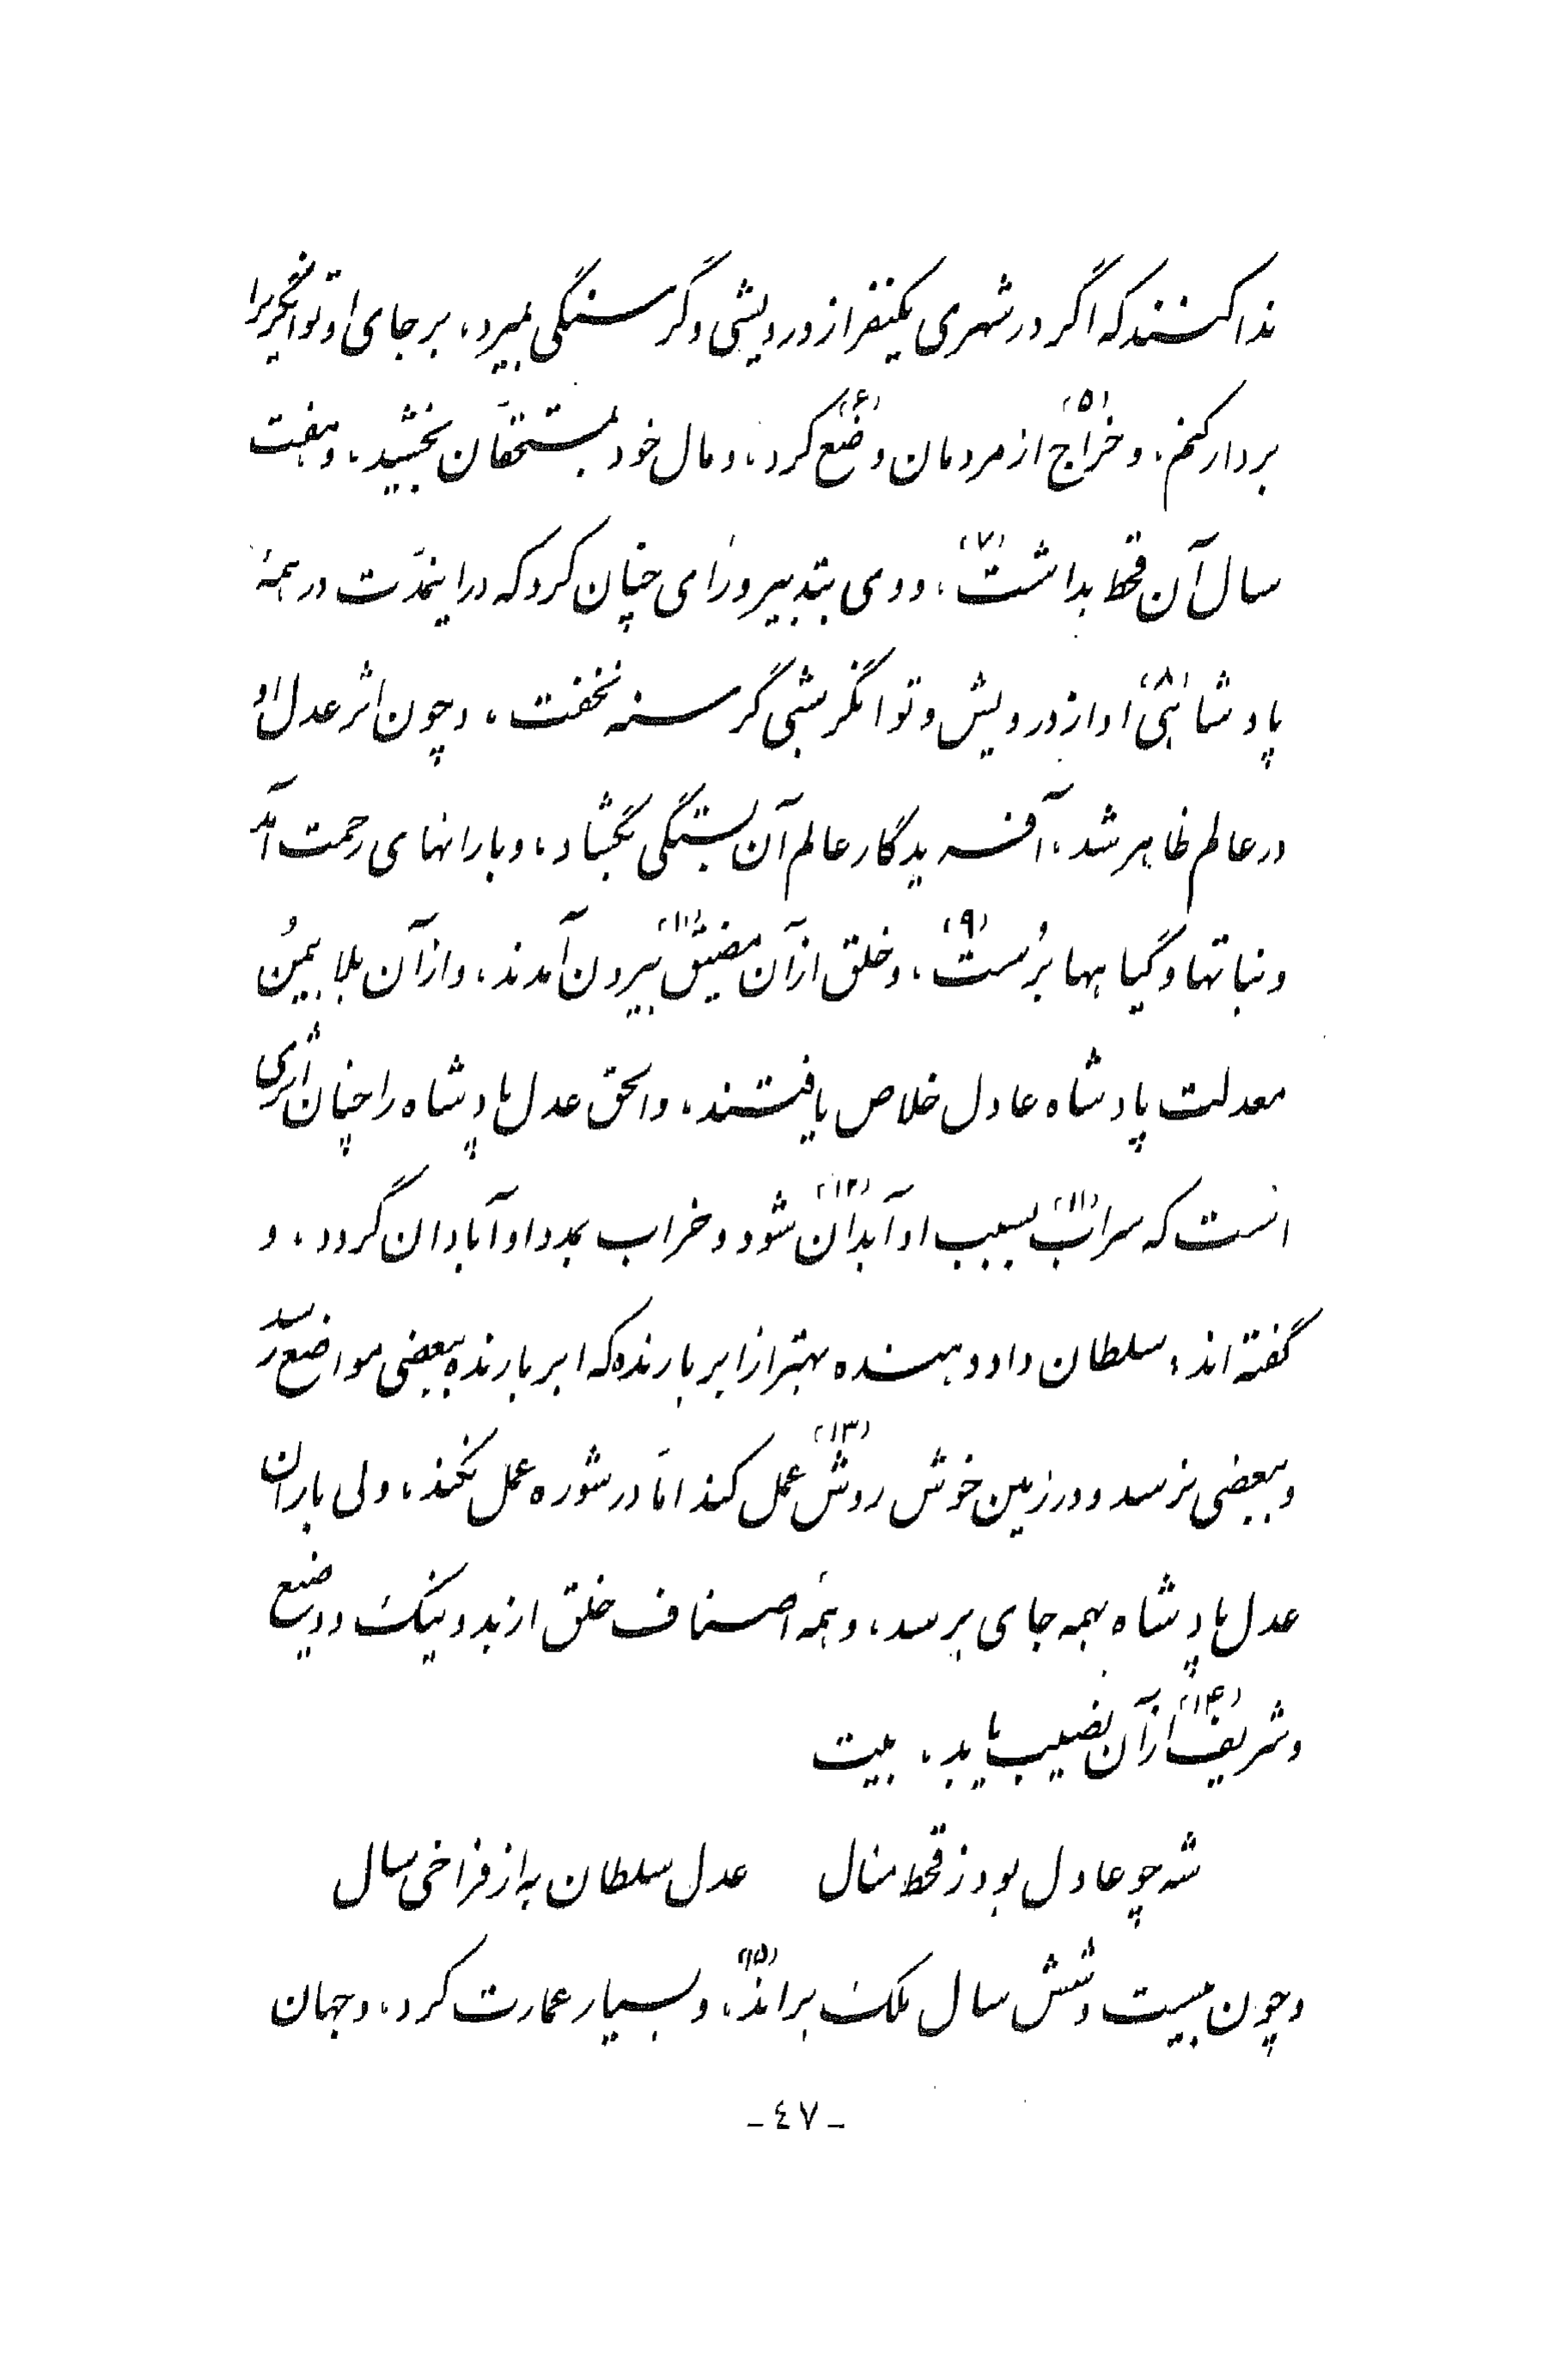 ندا کنند که اگر در شهری یکنفر از درویشی و گرسنگی بمیرد، بر جای او توانگریرا
بردار کنم، و خراج (۵) از مردمان وضع (۶) کرد، و مال خود بمستحقّان بخشید، و هفت
سال آن قحط بداشت (۷)، و وی بتدبیر و رای چنان کرد که در اینمدّت در همهٔ
پادشاهی (۸) او از درویش و توانگر شبی گرسنه نخفت، و چون اثر عدل او
در عالم ظاهر شد، آفریدگار عالم آن بستگی بگشاد، و بارانهای رحمت آمد
و نباتها و گیاهها بُرست (۹)، و خلق از آن مضیق (۱۰) بیرون آمدند، و از آن بلا بیُمن
معدلت پادشاه عادل خلاص یافتند، و الحق عدل پادشاه را چنان اثری
است که سراب (۱۱) بسبب او آبدان (۱۲) شود و خراب بمدد او آبادان گردد، و
گفته اند، سلطان داد دهنده بهتر از ابر بارنده که ابر بارنده ببعضی مواضع رسد
و ببعضی نرسد و در زمین خوش روش (۱۳) عمل کند امّا در شوره عمل نکند، ولی باران
عدل پادشاه بهمه جای برسد، و همهٔ اصناف خلق از بد و نیک و وضیع
و شریف (۱۴) از آن نصیب یابد، بیت
شه چو عادل بود ز قحط منال عدل سلطان به از فراخی سال
و چون بیست و شش سال ملک براند (۱۵)، و بسیار عمارت کرد، و جهان
- ٤٧ -